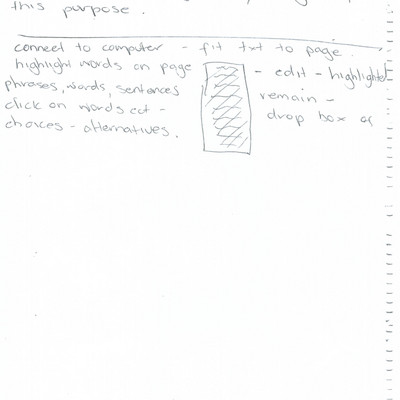 this purpose.
connect to computer - fit txt to page.
highlight words on page
phrases, words, sentences
click on words ect -
choices - alternatives.
- edit - highlighted
remain -
drop box of